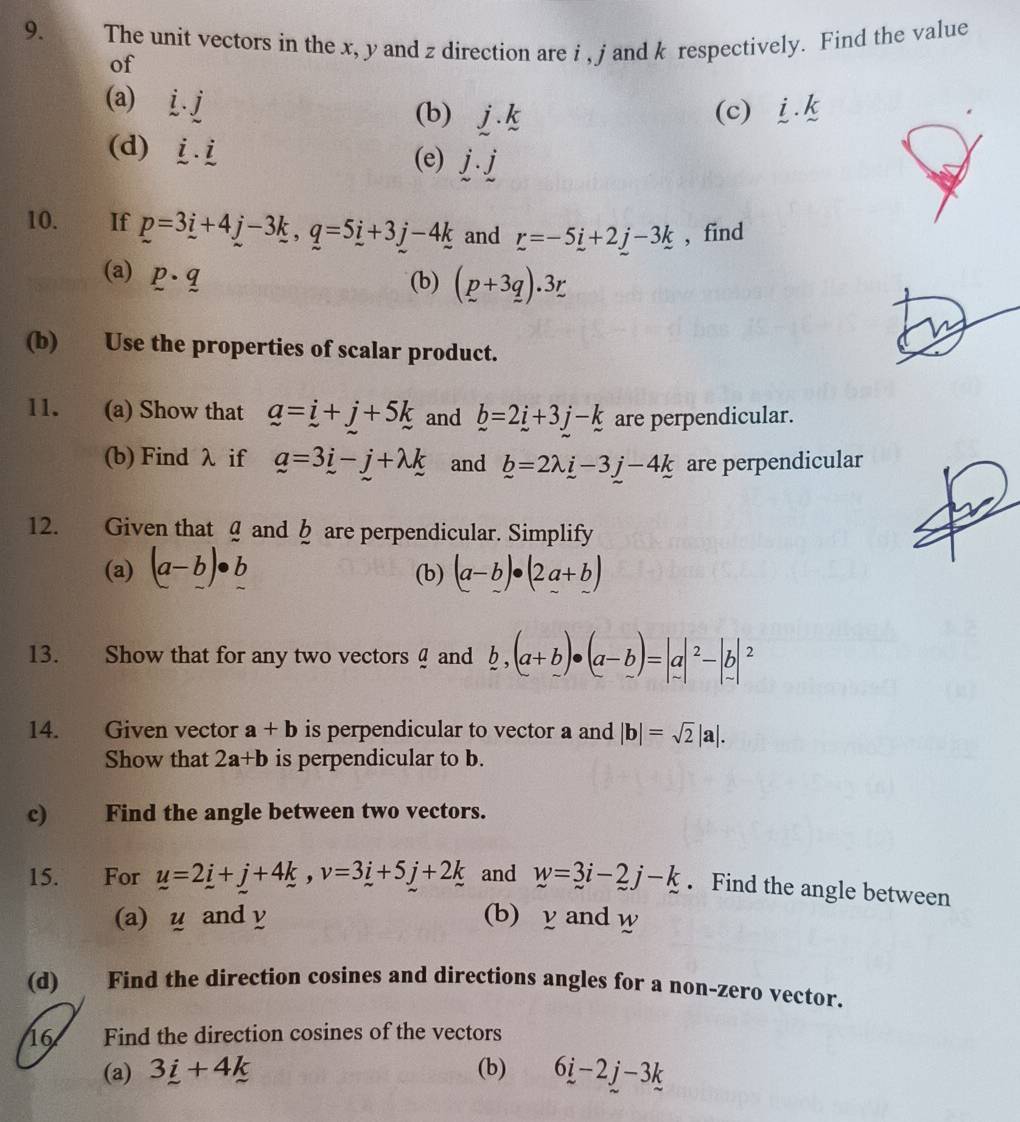 9. The unit vectors in the x, y and z direction are i , j and k respectively. Find the value
of
(a) i . j (b) j . k (c) i . k
(d) i . i (e) j . j
10. If p=3i+4j−3k, q=5i+3j−4k and r=−5i+2j−3k , find
(a) p . q (b) (p+3q).3r
(b) Use the properties of scalar product.
11. (a) Show that a=i+j+5k and b=2i+3j−k are perpendicular.
(b) Find λ if a=3i−j+λk and b=2λi−3j−4k are perpendicular
12. Given that a and b are perpendicular. Simplify
(a) (a−b)•b (b) (a−b)•(2a+b)
13. Show that for any two vectors a and b, (a+b)•(a−b)=|a|²−|b|²
14. Given vector a + b is perpendicular to vector a and |b| = √2|a|.
Show that 2a+b is perpendicular to b.
c) Find the angle between two vectors.
15. For u=2i+j+4k , v=3i+5j+2k and w=3i−2j−k . Find the angle between
(a) u and v (b) v and w
(d) Find the direction cosines and directions angles for a non-zero vector.
16. Find the direction cosines of the vectors
(a) 3i+4k (b) 6i−2j−3k